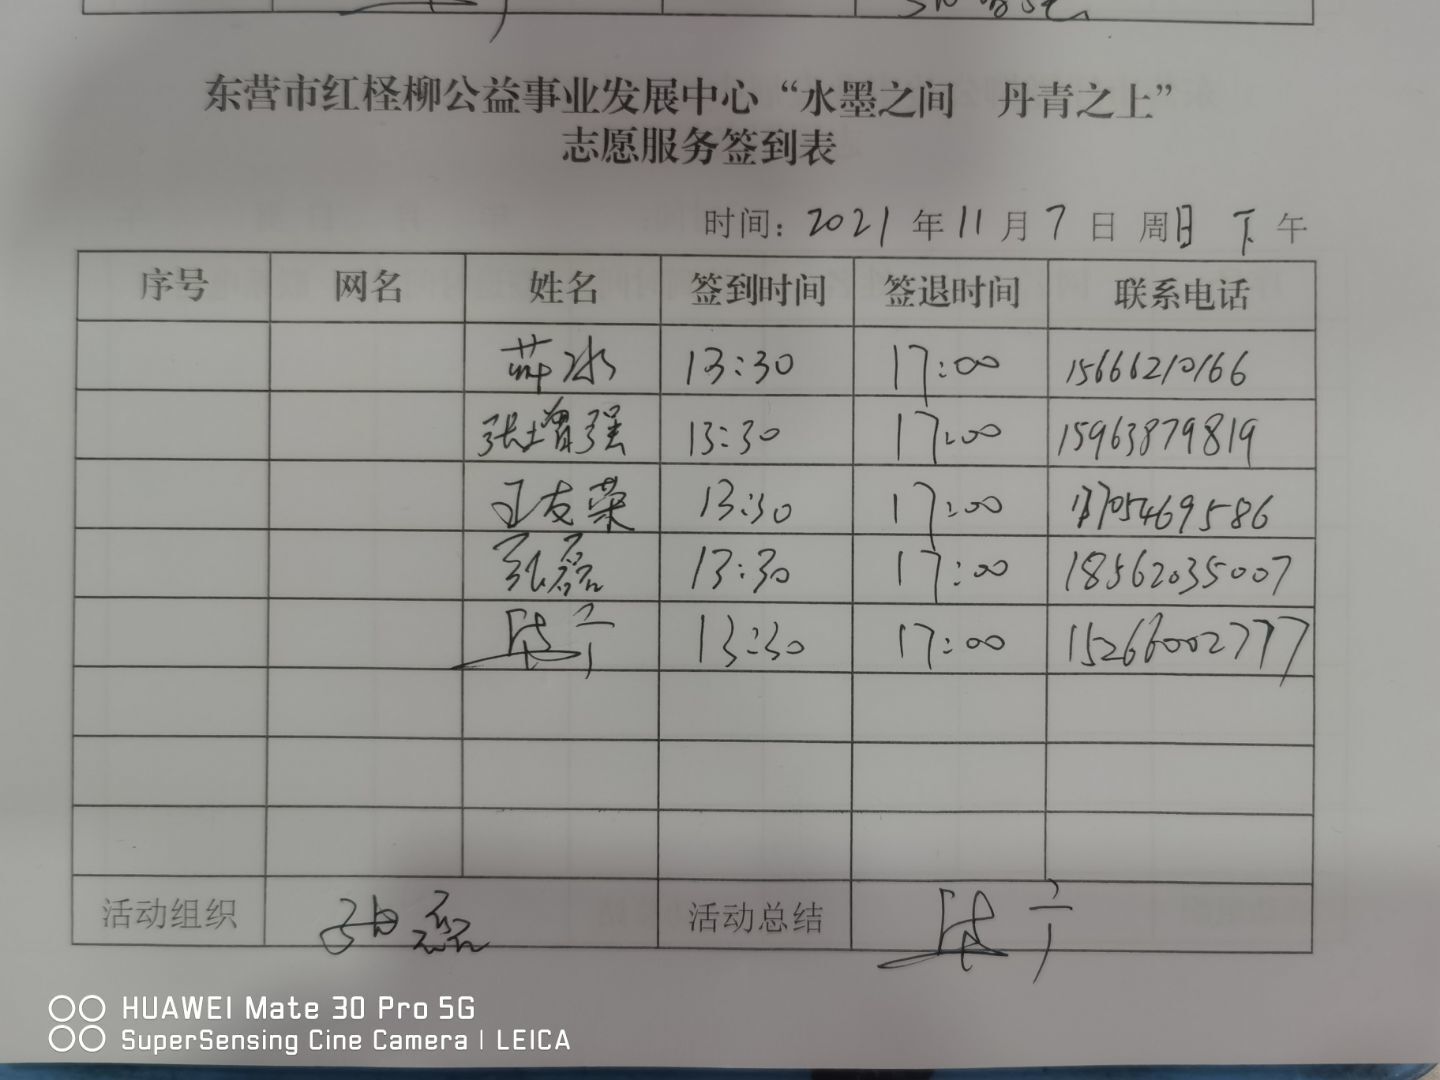 东营市红柽柳公益事业发展中心“水墨之间　丹青之上”
志愿服务签到表
时间：2021年11月7日 周日 下午
序号 网名 姓名 签到时间 签退时间 联系电话
13:30 17:00 15666210166
张增强 13:30 17:00 15963879819
王友荣 13:30 17:00 17705469586
张磊 13:30 17:00 18562035007
13:30 17:00 15266002777
活动组织 张磊 活动总结
HUAWEI Mate 30 Pro 5G
SuperSensing Cine Camera | LEICA